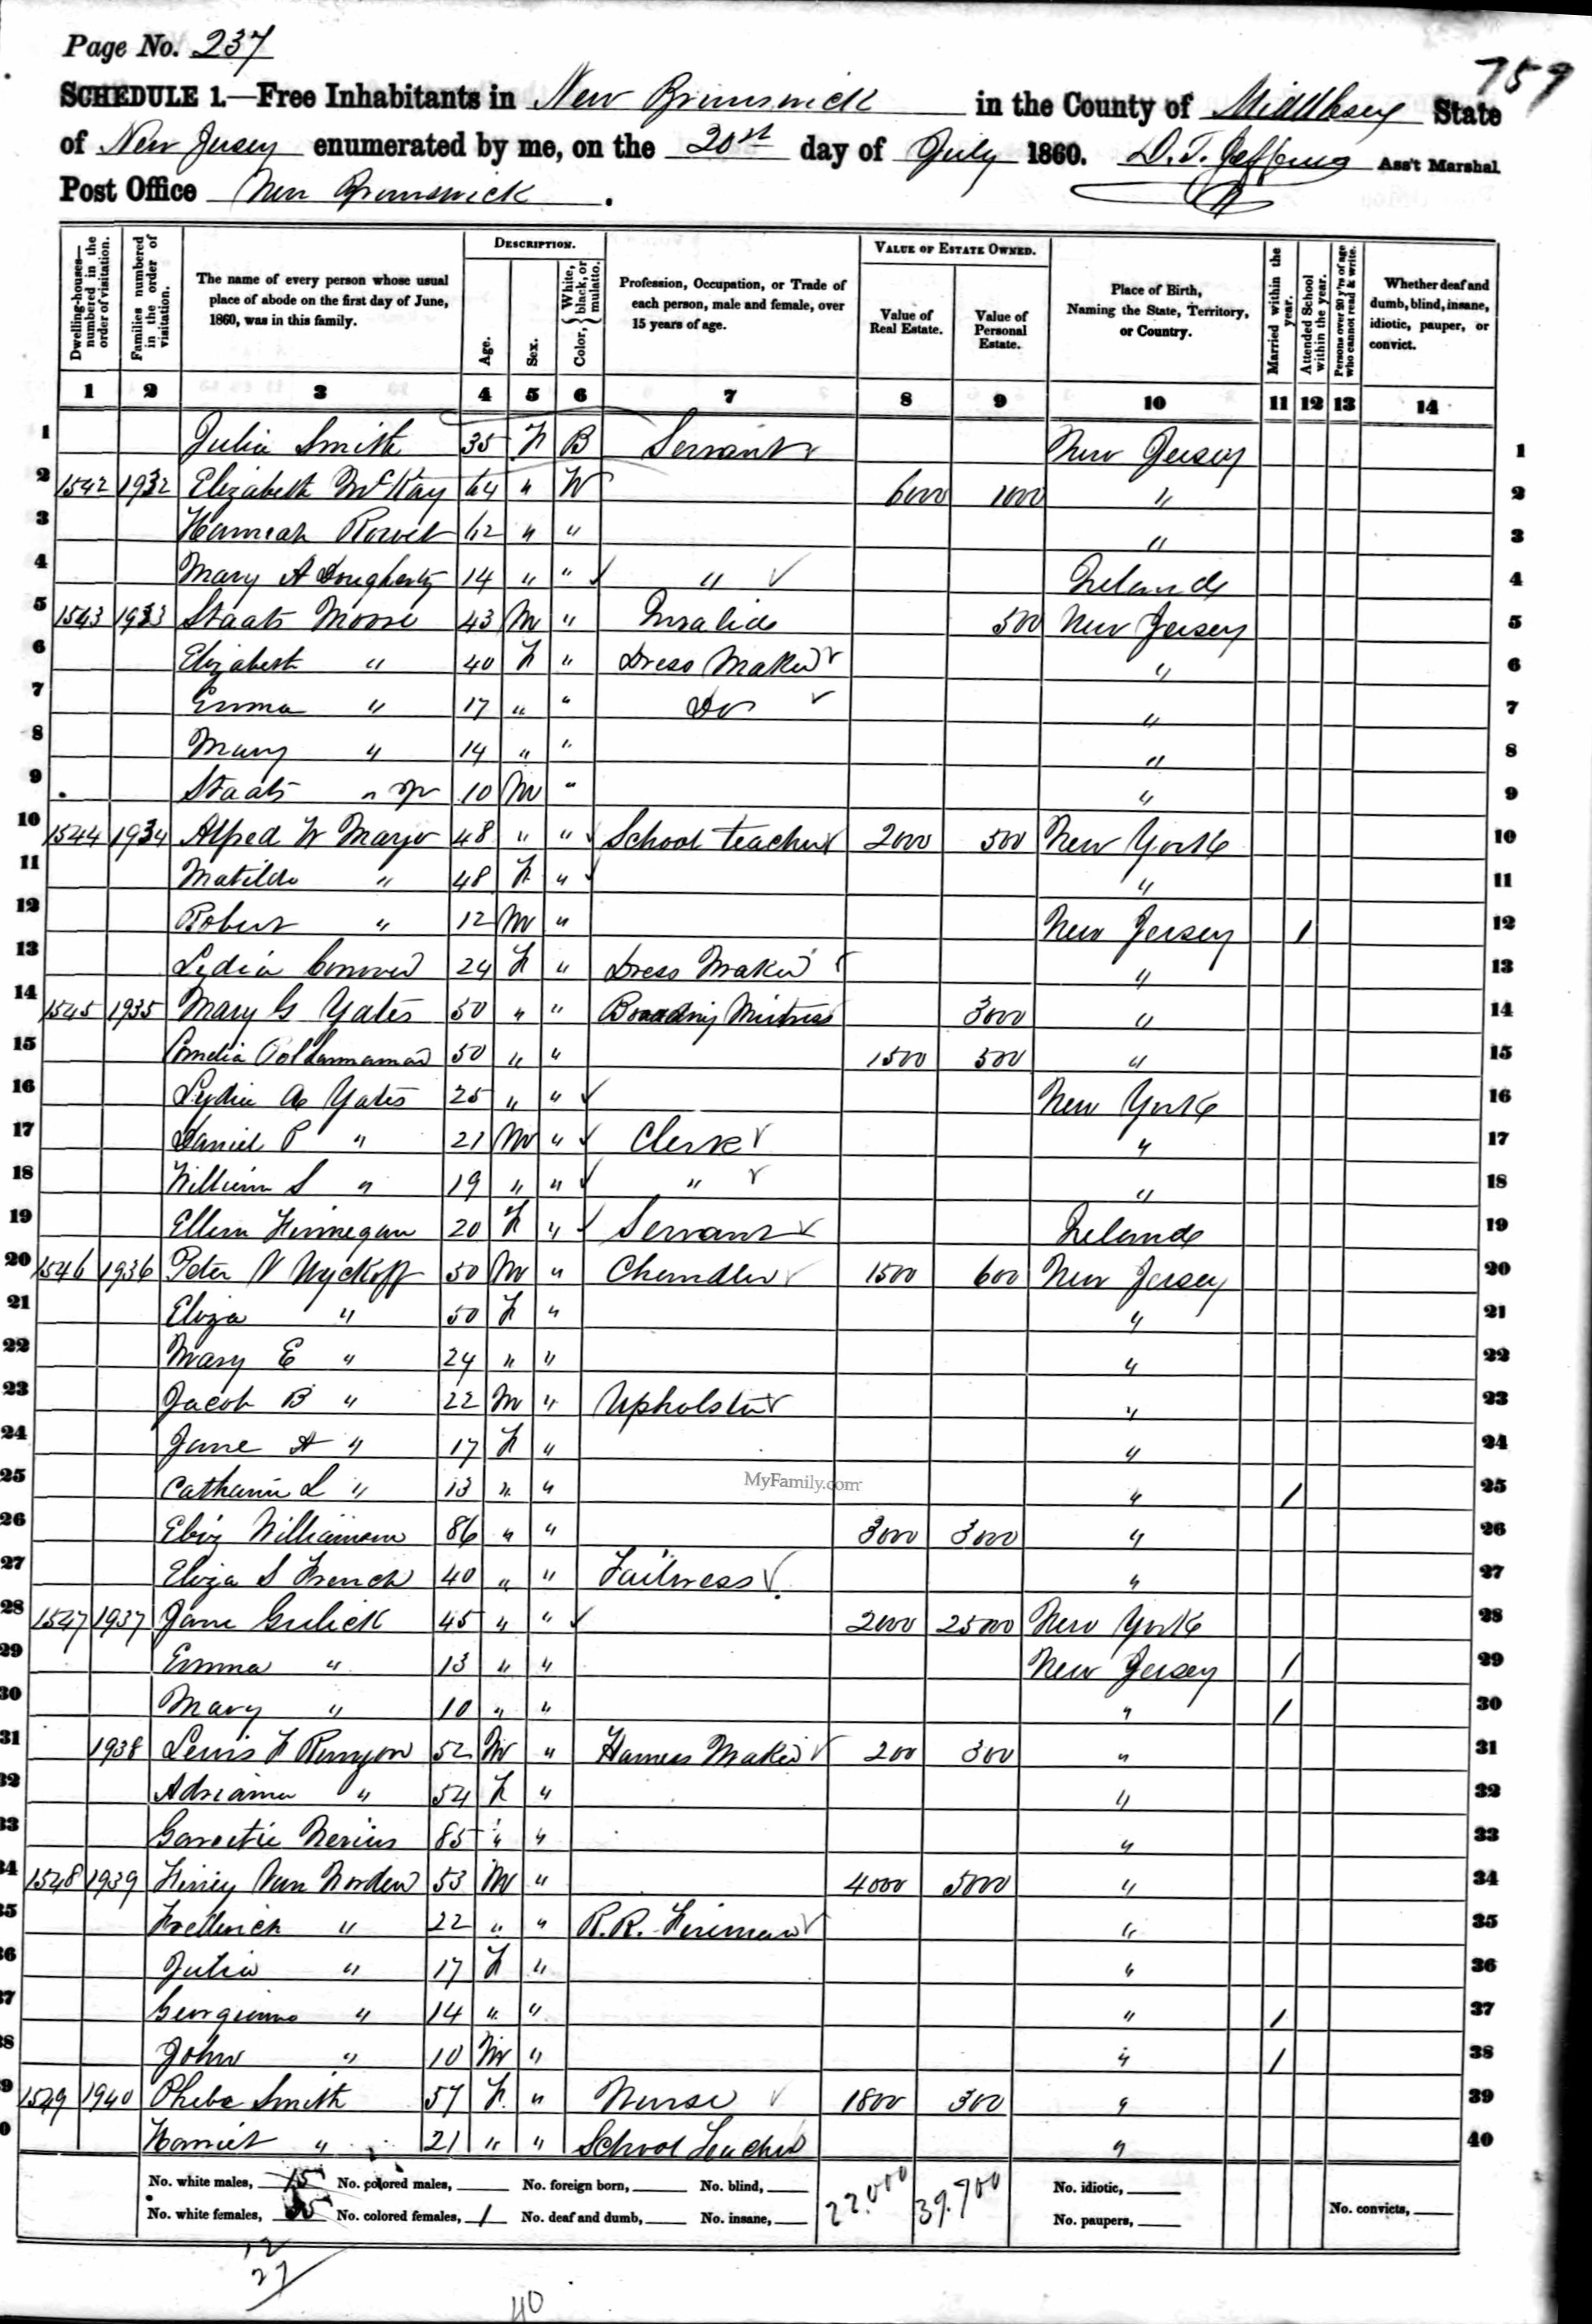 Page No. 237
759
SCHEDULE 1.—Free Inhabitants in New Brunswick in the County of Middlesex State
of New Jersey enumerated by me, on the 20st day of July 1860. Ass't Marshal
Post Office New Brunswick.
Dwelling-houses—numbered in the order of visitation.
Families numbered in the order of visitation.
The name of every person whose usual place of abode on the first day of June, 1860, was in this family.
DESCRIPTION.
Age.
Sex.
Color, { White, black, or mulatto.
Profession, Occupation, or Trade of each person, male and female, over 15 years of age.
VALUE OF ESTATE OWNED.
Value of Real Estate.
Value of Personal Estate.
Place of Birth, Naming the State, Territory, or Country.
Married within the year.
Attended School within the year.
Persons over 20 y'rs of age who cannot read & write.
Whether deaf and dumb, blind, insane, idiotic, pauper, or convict.
1 2 3 4 5 6 7 8 9 10 11 12 13 14
1 Julia Smith 35 F B Servant New Jersey 1
2 1542 1932 Elizabeth McKay 64 " W 6000 1000 " 2
3 Hannah 62 " " " 3
4 Mary A Dougherty 14 " " " Ireland 4
5 1543 1933 Staats Moore 43 M " Invalid 500 New Jersey 5
6 Elizabeth " 40 F " Dress Maker " 6
7 Emma " 17 " " Do " 7
8 Mary " 14 " " " 8
9 Staats " Jr 10 M " " 9
10 1544 1934 Alfred W Mayo 48 " " School teacher 2000 500 New York 10
11 Matilda " 48 F " " 11
12 Robert " 12 M " New Jersey 1 12
13 Lydia Conover 24 F " Dress Maker " 13
14 1545 1935 Mary G Yates 50 " " Boarding Mistress 3000 " 14
15 Cornelia 50 " " 1500 500 " 15
16 Lydia A Yates 25 " " New York 16
17 Daniel P " 21 M " Clerk " 17
18 William S " 19 " " " " 18
19 Ellen Finnegan 20 F " Servant Ireland 19
20 1546 1936 Peter V Wyckoff 50 M " Chandler 1500 600 New Jersey 20
21 Eliza " 50 F " " 21
22 Mary E " 24 " " " 22
23 Jacob B " 22 M " Upholster " 23
24 Jane A " 17 F " " 24
25 Catharine L " 13 " " " 1 25
MyFamily.com
26 Eliz Williamson 86 " " 3000 3000 " 26
27 Eliza S French 40 " " Tailoress " 27
28 1547 1937 Jane Gulick 45 " " 2000 25000 New York 28
29 Emma " 13 " " New Jersey 1 29
30 Mary " 10 " " " 1 30
31 1938 Lewis F Runyon 52 M " Harness Maker 200 300 " 31
32 Adriana " 54 F " " 32
33 Nevius 85 " " " 33
34 1548 1939 Henry Van Norden 53 M " 4000 5000 " 34
35 Frederick " 22 " " R.R. Fireman " 35
36 Julia " 17 F " " 36
37 Georgianna " 14 " " " 1 37
38 John " 10 M " " 1 38
39 1549 1940 Phebe Smith 57 F " Nurse 1800 300 " 39
40 Harriet " 21 " " School Teacher " 40
No. white males, 15 No. colored males, No. foreign born, No. blind, 22.000 39.700 No. idiotic,
No. white females, No. colored females, 1 No. deaf and dumb, No. insane, No. paupers, No. convicts,
12
27
40